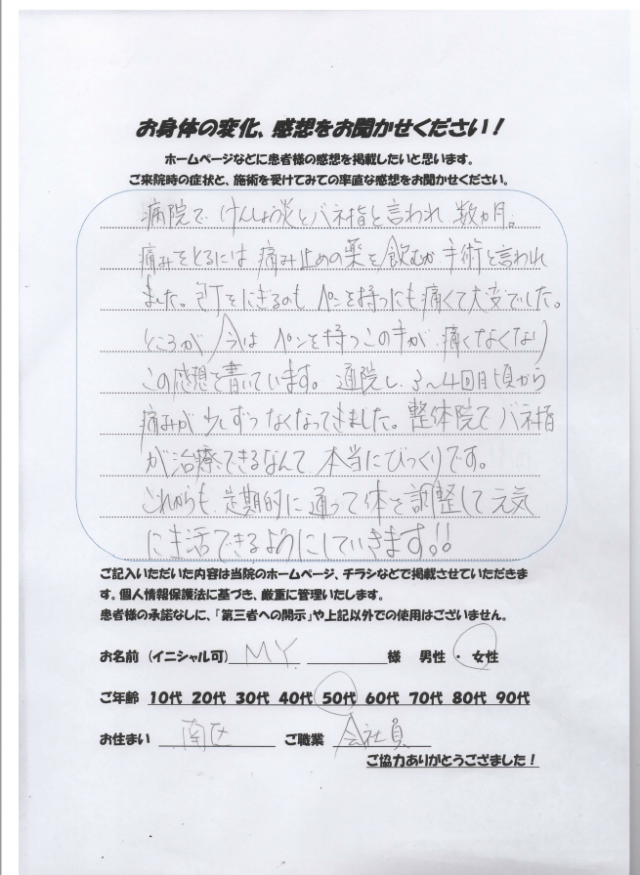 お身体の変化、感想をお聞かせください！
ホームページなどに患者様の感想を掲載したいと思います。
ご来院時の症状と、施術を受けてみての率直な感想をお聞かせください。
病院で、けんしょう炎とバネ指と言われ 数ヵ月。
痛みをとるには 痛み止めの薬を飲むか 手術と言われ
ました。包丁をにぎるのも ペンを持つにも 痛くて大変でした。
ところが 今は ペンを持つこの手が、痛くなくなり
この感想を書いています。通院し、3〜4回目頃から
痛みが 少しずつ なくなってきました。整体院で バネ指
が治療できるなんて 本当にびっくりです。
これからも、定期的に通って体を調整して元気
に生活できるようにしていきます!!
ご記入いただいた内容は当院のホームページ、チラシなどで掲載させていただきま
す。個人情報保護法に基づき、厳重に管理いたします。
患者様の承諾なしに、「第三者への開示」や上記以外での使用はございません。
お名前（イニシャル可） M.Y. 様 男性 ・ 女性
ご年齢 10代 20代 30代 40代 50代 60代 70代 80代 90代
お住まい 南区 ご職業 会社員
ご協力ありがとうござました！